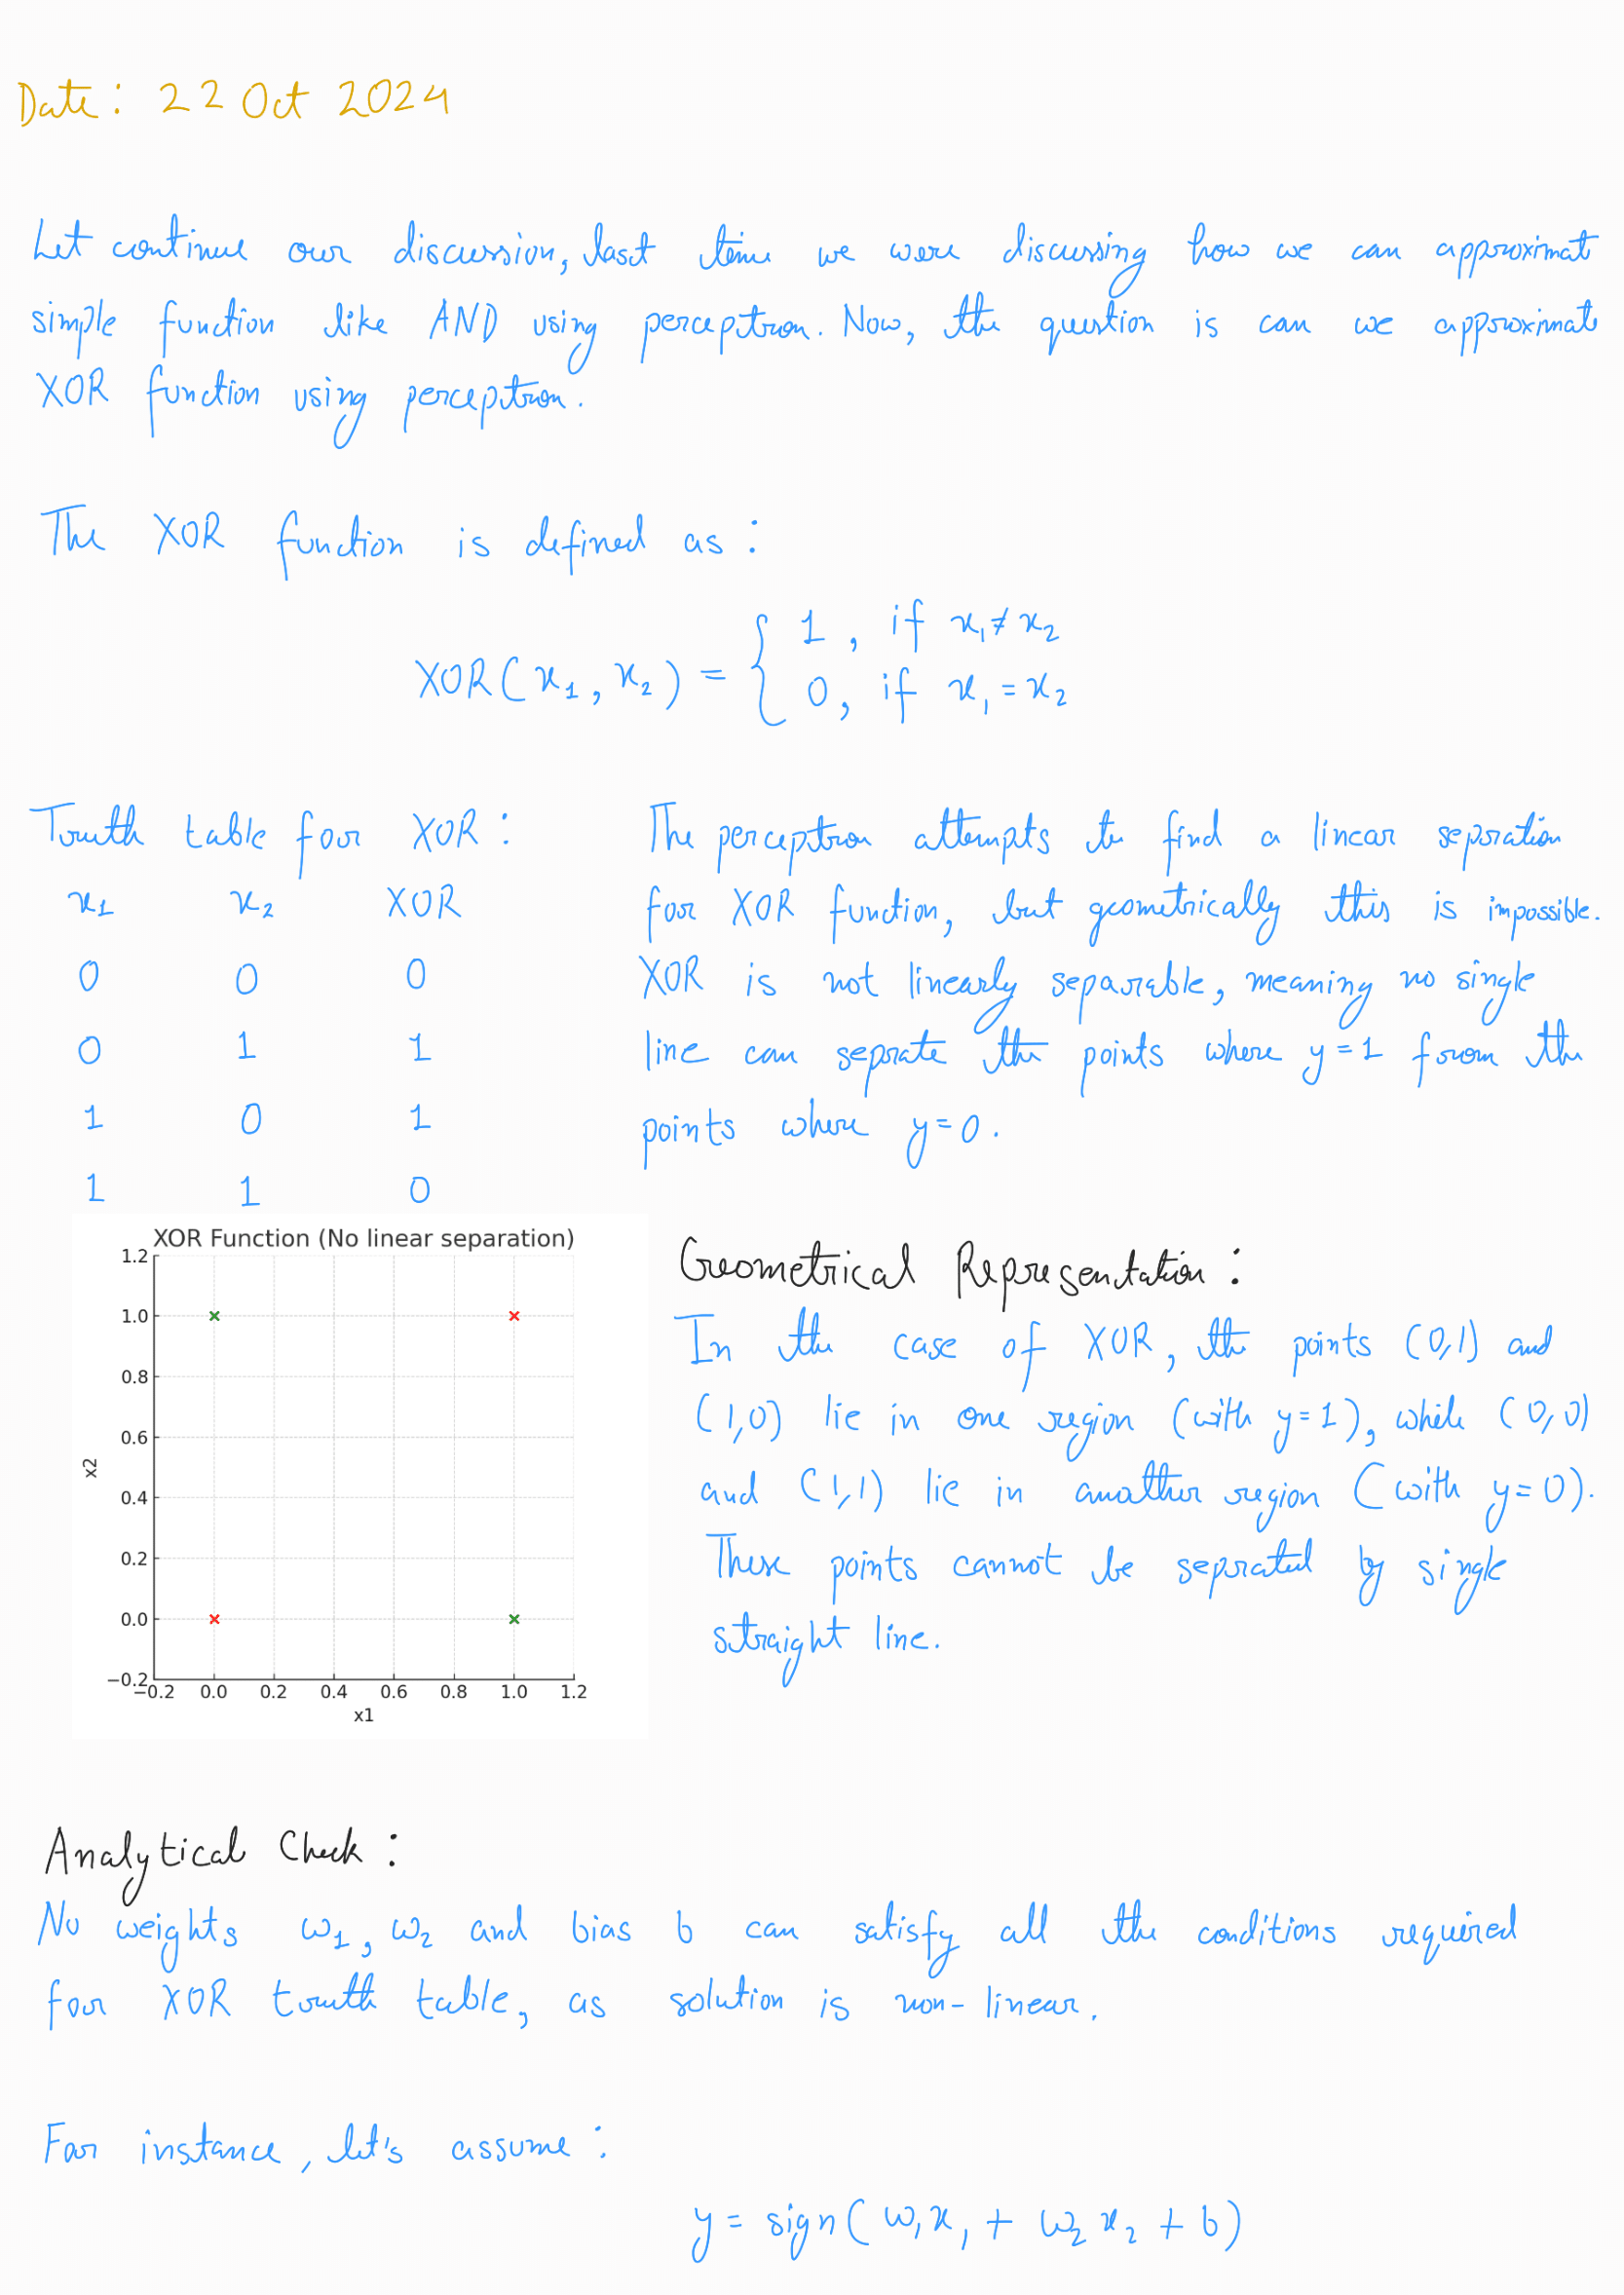 Date: 22 Oct 2024
Let continue our discussion, last time we were discussing how we can approximat
simple function like AND using perceptron. Now, the question is can we approximate
XOR function using perceptron.
The XOR function is defined as:
XOR(x₁, x₂) = { 1, if x₁ ≠ x₂
0, if x₁ = x₂
Truth table for XOR:
x₁ x₂ XOR
0 0 0
0 1 1
1 0 1
1 1 0
The perceptron attempts to find a linear sepration
for XOR function, but geometrically this is impossible.
XOR is not linearly separable, meaning no single
line can seprate the points where y=1 from the
points where y=0.
XOR Function (No linear separation)
1.2
1.0
0.8
0.6
0.4
0.2
0.0
−0.2
x2
−0.2 0.0 0.2 0.4 0.6 0.8 1.0 1.2
x1
Geometrical Representation:
In the case of XOR, the points (0,1) and
(1,0) lie in one region (with y=1), while (0,0)
and (1,1) lie in another region (with y=0).
These points cannot be seprated by single
straight line.
Analytical Check:
No weights ω₁, ω₂ and bias b can satisfy all the conditions required
for XOR truth table, as solution is non-linear.
For instance, let's assume:
y = sign(ω₁x₁ + ω₂x₂ + b)